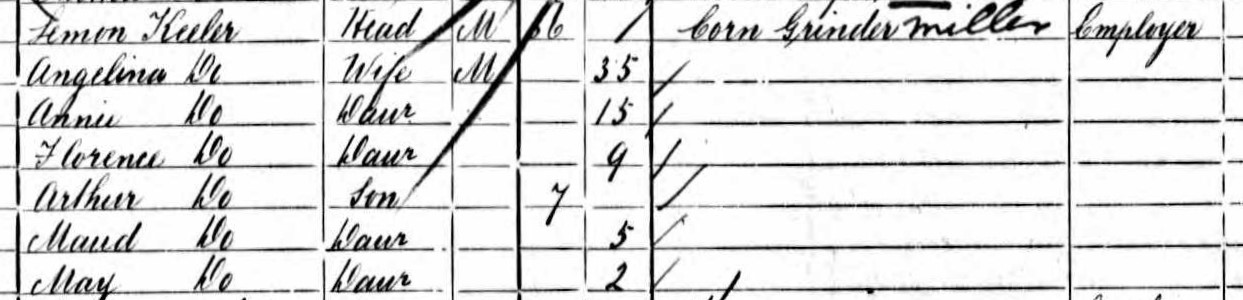 Simon Keeler Head M Corn Grinder miller Employer
Angelina Do Wife M 35
Annie Do Daur 15
Florence Do Daur 9
Arthur Do Son 7
Maud Do Daur 5
May Do Daur 2